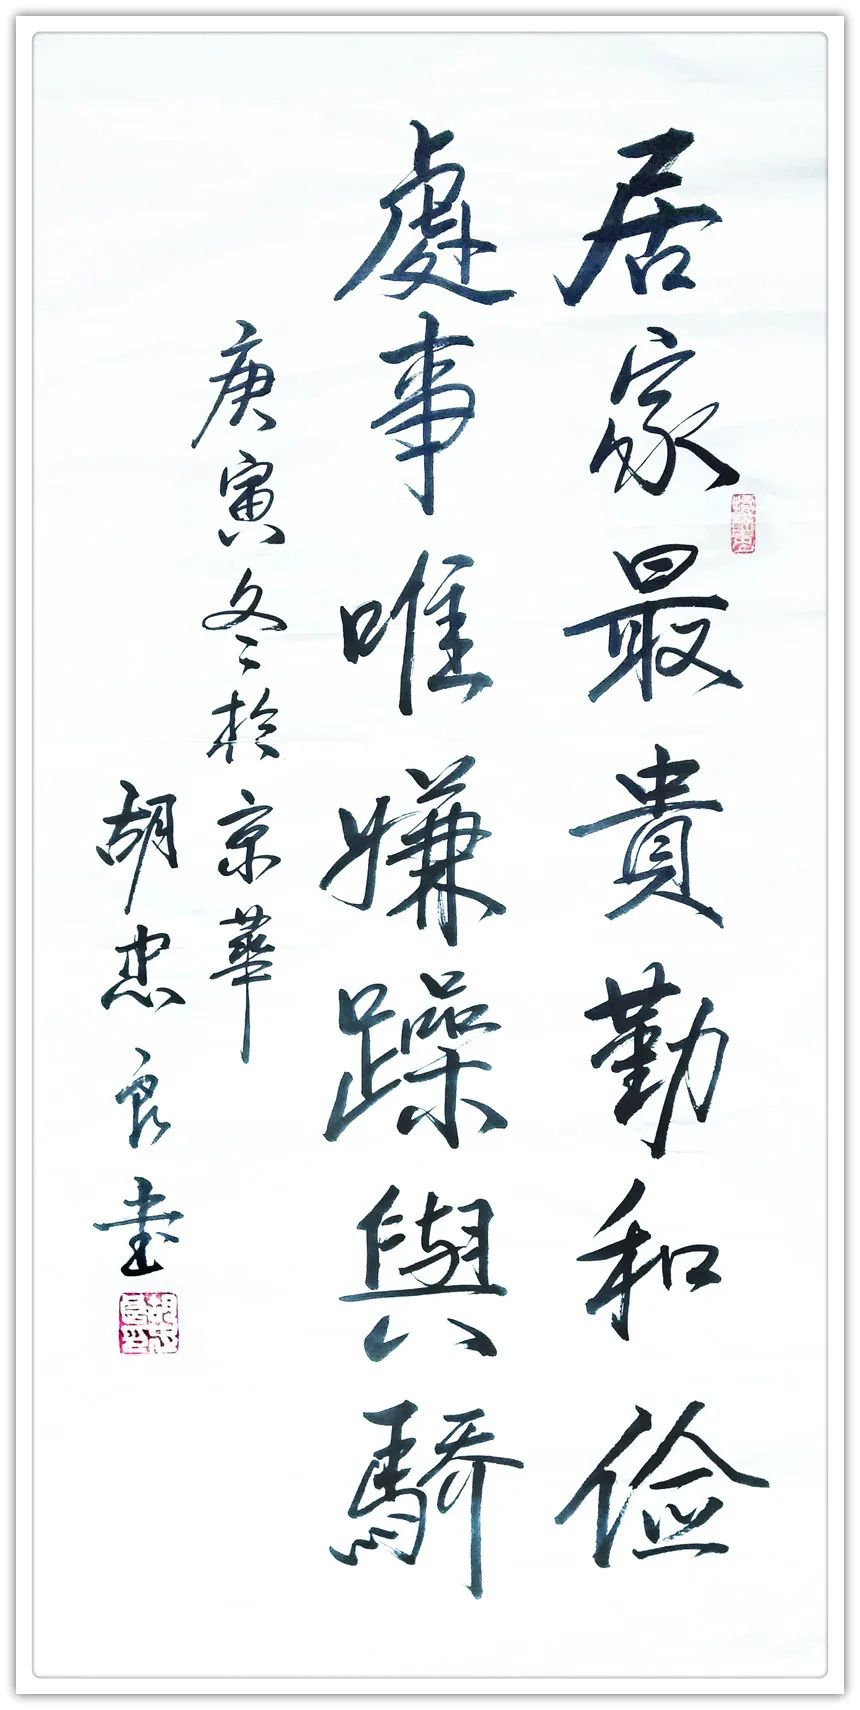 居家最貴勤和俭
處事唯嫌躁與驕
庚寅冬於京華
胡忠良书